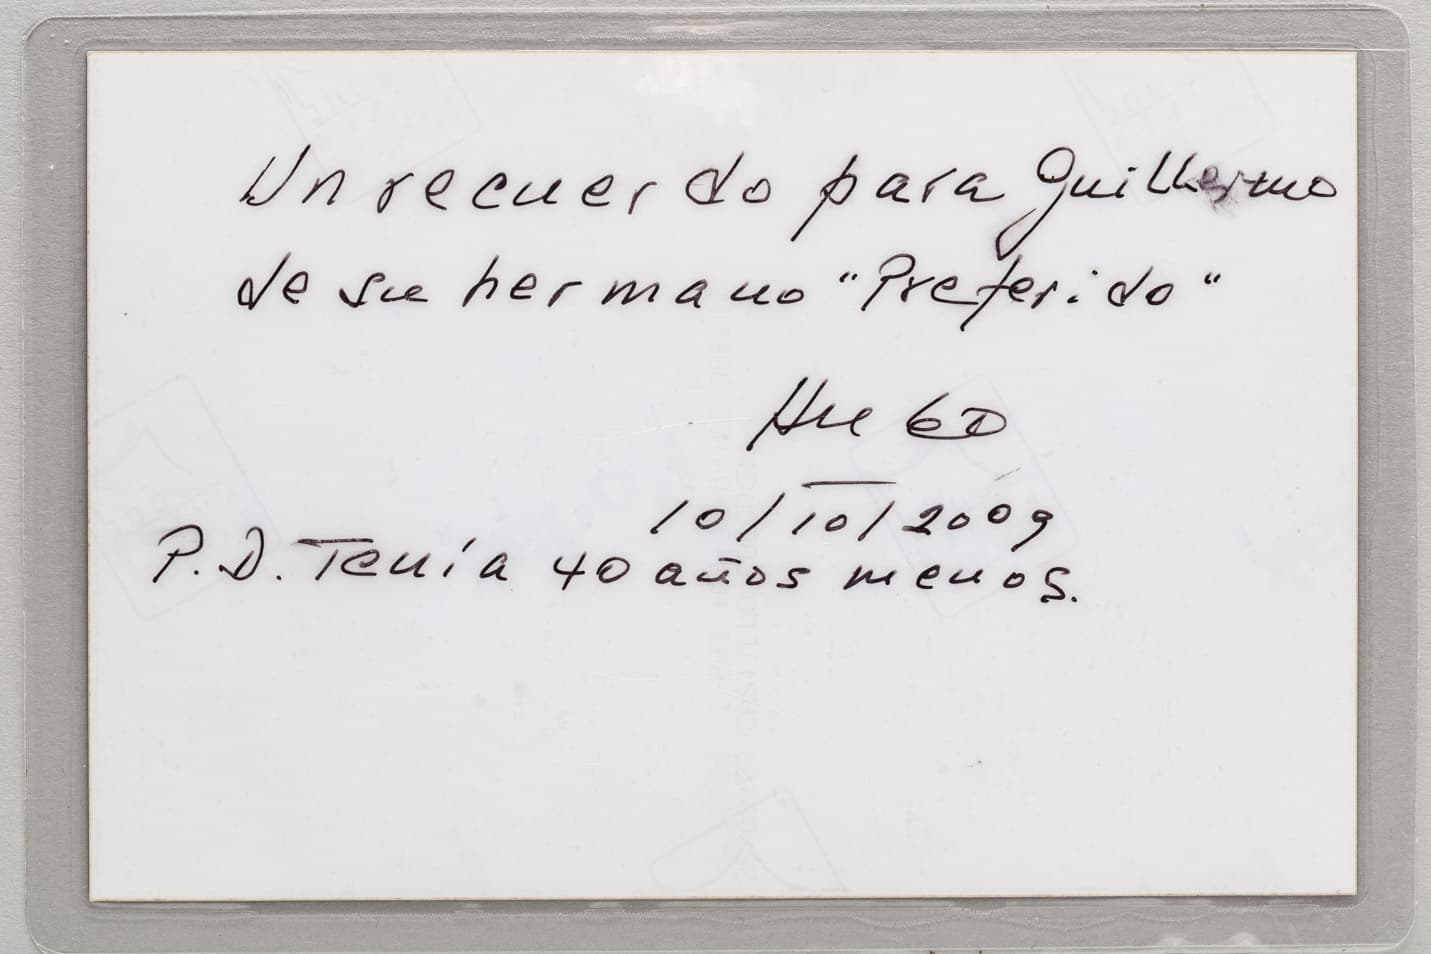 Un recuerdo para Guillermo
de su hermano "Preferido"
Hugo
10/10/2009
P.D. Tenía 40 años menos.